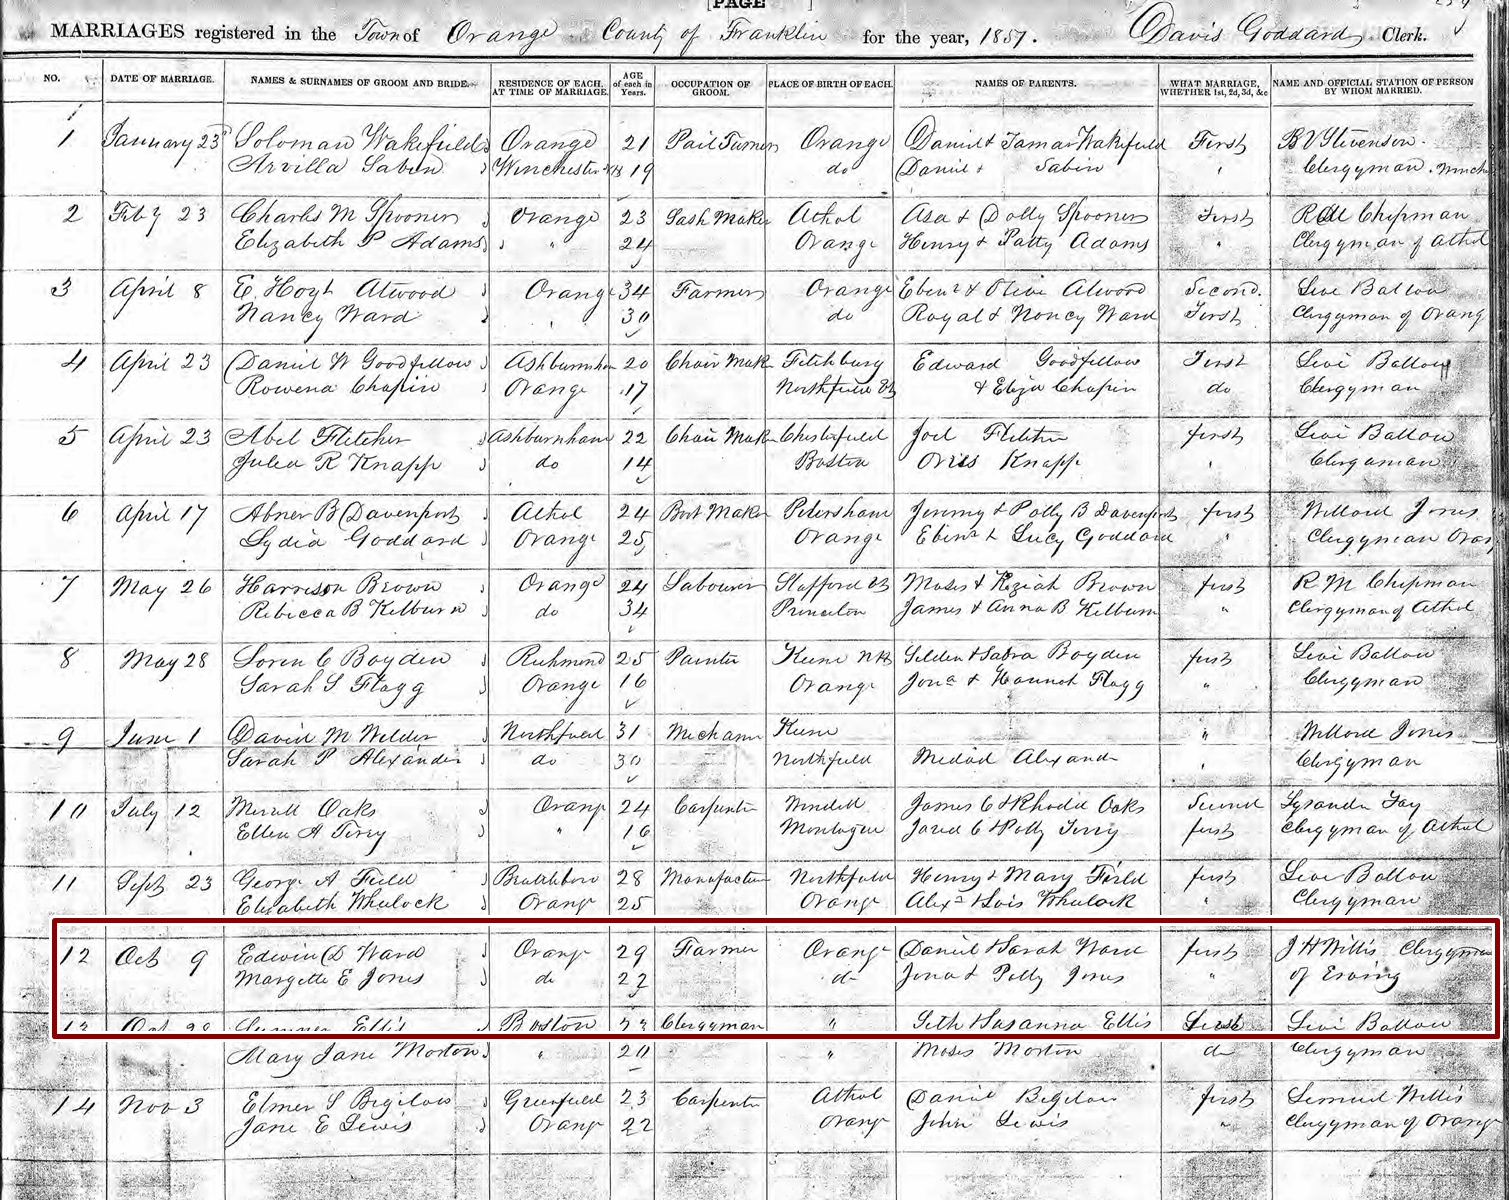 [PAGE ]
MARRIAGES registered in the Town of Orange County of Franklin for the year, 1857. Davis Goddard Clerk.
NO. DATE OF MARRIAGE. NAMES & SURNAMES OF GROOM AND BRIDE. RESIDENCE OF EACH AT TIME OF MARRIAGE. AGE of each in Years. OCCUPATION OF GROOM. PLACE OF BIRTH OF EACH. NAMES OF PARENTS. WHAT MARRIAGE, WHETHER 1st, 2d, 3d, &c NAME AND OFFICIAL STATION OF PERSON BY WHOM MARRIED.
1 January 23d Soloman Wakefield Orange 21 Pail Turner Orange Daniel & Tamar Wakefield First B V Stevenson
Arvilla Sabin Winchester NH 19 do Daniel & Sabin " Clergyman. Winch
2 Feby 23 Charles M Spooner Orange 23 Sash Maker Athol Asa & Dolly Spooner First R M Chipman
Elizabeth P Adams " 24 Orange Henry & Patty Adams " Clergyman of Athol
3 April 8 E. Hoyt Atwood Orange 34 Farmer Orange Ebenr & Olive Atwood Second. Levi Ballou
Nancy Ward " 30 do Royal & Nancy Ward First Clergyman of Orang
4 April 23 Daniel W Goodfellow Ashburnham 20 Chair Mak Fitchburg Edward Goodfellow First Levi Ballou
Rowena Chapin Orange 17 Northfield Vt & Eliza Chapin do Clergyman
5 April 23 Abel Fletcher Ashburnham 22 Chair Mak Chesterfield Joel Fletcher first Levi Ballou
Julia R Knapp do 14 Boston Knapp " Clergyman
6 April 17 Abner B Davenport Athol 24 Boot Maker Petersham Jeremy & Polly B Davenport first Willard Jones
Lydia Goddard Orange 25 Orange Ebenr & Lucy Goddard " Clergyman Oran
7 May 26 Harrison Brown Orange 24 Labourer Stafford Vt Moses & Keziah Brown first R M Chipman
Rebecca B Kilburn do 34 Princeton James & Anna B Kilburn " Clergyman of Athol
8 May 28 Loren C Boyden Richmond 25 Painter Keene NH Selden & Sabra Boyden first Levi Ballou
Sarah S Flagg Orange 16 Orange Jona & Hannah Flagg " Clergyman
9 June 1 David M Wilder Northfield 31 Mechanic Keene " Willard Jones
Sarah P Alexander do 30 Northfield Medad Alexander " Clergyman
10 July 12 Merrill Oaks Orange 24 Carpenter Wendell James C & Rhoda Oaks Second Lysander Fay
Ellen A Terry " 16 Montague Jared C & Polly Terry first Clergyman of Athol
11 Sept 23 George A Field Brattleboro 28 Manufactur Northfield Henry & Mary Field first Levi Ballou
Elizabeth Whulock Orange 25 Orange Alexr & Lois Whulock " Clergyman
12 Oct 9 Edwin D Ward Orange 29 Farmer Orange Daniel & Sarah Ward first J H Willis Clergyman
Margette E Jones do 22 do Jona & Polly Jones " of Erving
13 Oct Sumner Ellis Boston Clergyman " Seth & Susanna Ellis first Levi Ballou
Mary Jane Morton " 20 " Moses Morton do Clergyman
14 Nov 3 Elmer S Bigelow Greenfield 23 Carpenter Athol Daniel Bigelow first Lemuel Willis
Jane E Lewis Orange 22 Orange John Lewis " Clergyman of Orange